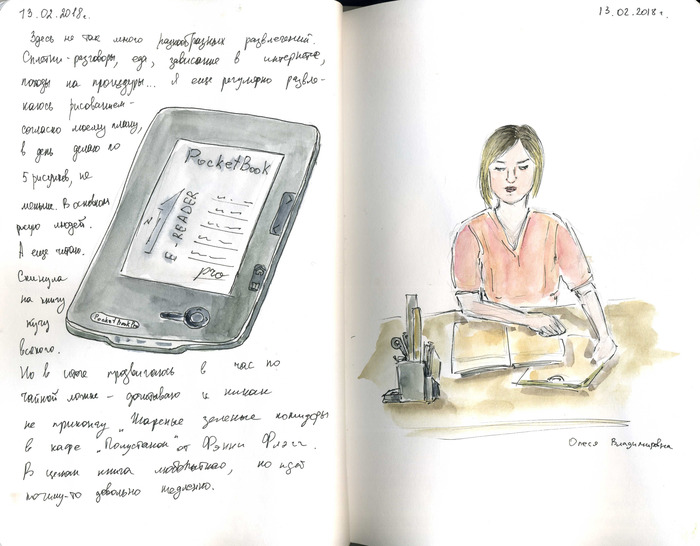 13.02.2018г.
Здесь не так много разнообразных развлечений.
Сплетни-разговоры, еда, зависание в интернете,
походы на процедуры... Я еще регулярно развле-
каюсь рисованием -
согласно моему плану,
в день делаю по
5 рисунков, не
меньше. В основном
рисую людей.
А еще читаю.
Скинула
на книгу
кучу
всякого.
Но в итоге продвигаюсь в час по
чайной ложке - дочитываю и никак
не прикончу "Жареные зеленые помидоры
в кафе "Полустанок" от Фэнни Флэгг.
В целом книга любопытная, но идёт
почему-то довольно медленно.
PocketBook
E-READER
pro
PocketBook
13.02.2018г.
Олеся Владимировна